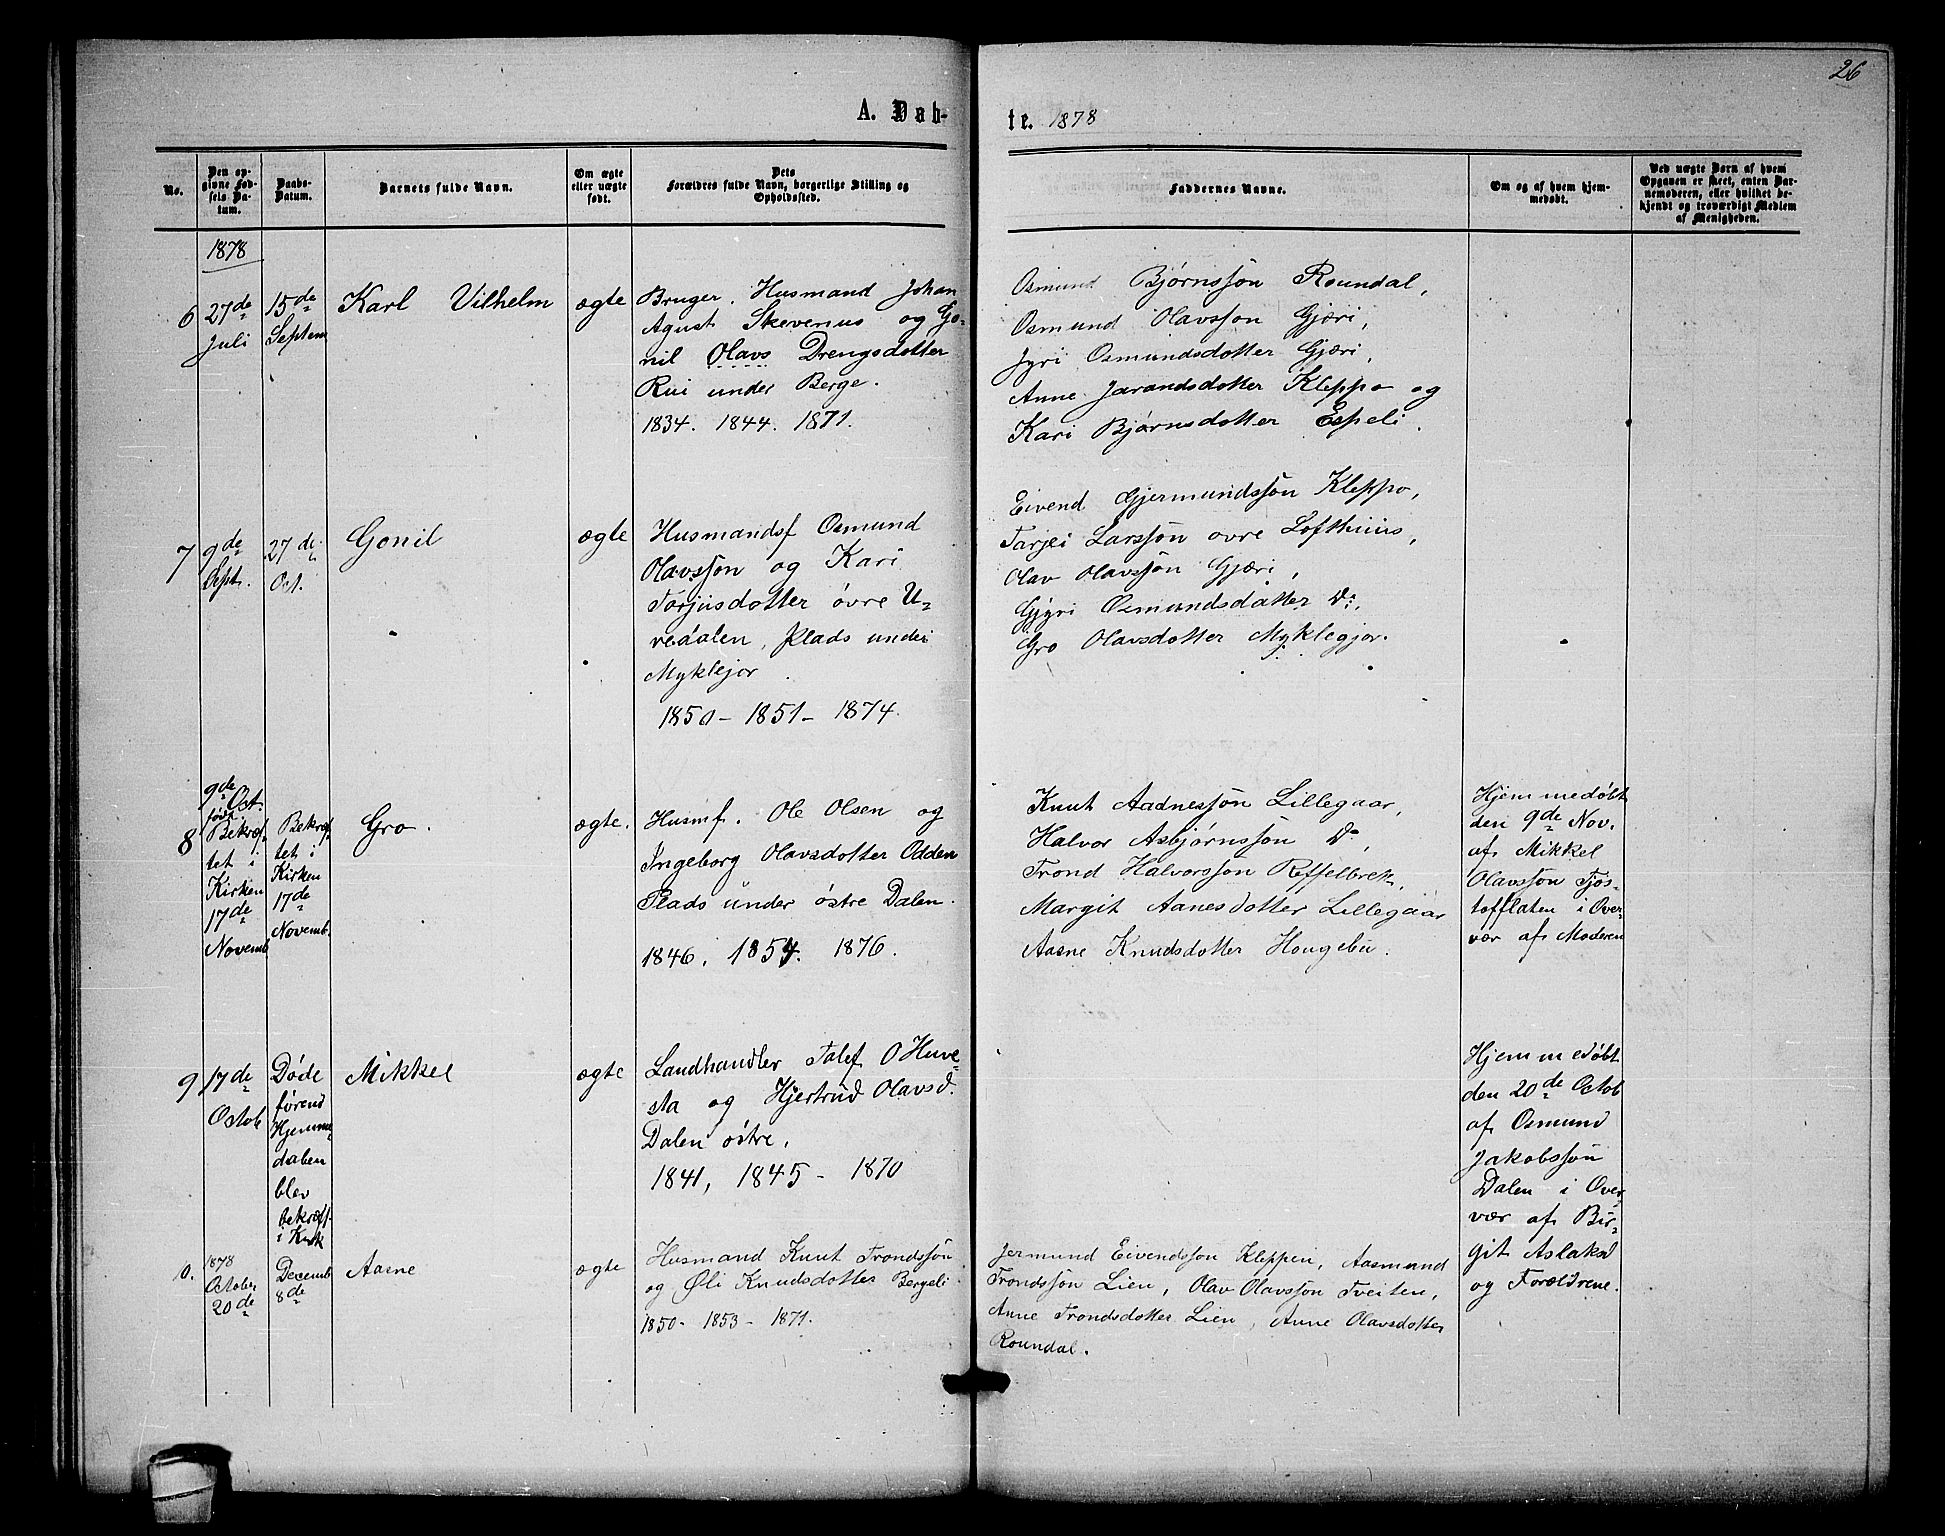 26
A. Døb-
te. 1878
No.
Den op-
givne Fød-
sels Da-
tum.
Daabs-
Datum.
Barnets fulde Navn.
Om ægte
eller uægte
født.
Dets
Forældres fulde Navn, borgerlige Stilling og
Opholdssted.
Faddernes Navne.
Om og af hvem hjem-
medøbt.
Ved uægte Børn af hvem
Opgaven er skeet, enten Bar-
nemoderen, eller hvilket be-
kjendt og troværdigt Medlem
af Menigheden.
1878
6
27de
Juli
15de
Septem
Karl Vilhelm
ægte
Bruger. Husmand Johan
Agust Skevenius og Go-
nil Olavs Drengsdotter
Rui under Berge.
1834. 1844. 1871.
Osmund Bjørnssøn Roundal,
Osmund Olavssøn Gjæri,
Jyri Osmundsdotter Gjæri,
Anne Jarandsdotter Kleppo og
Kari Bjørnsdotter Espeli.
7
9de
Sept.
27de
Oct.
Gonil
ægte
Husmandsf Osmund
Olavssøn og Kari
Torjusdotter øvre U-
vedalen, Plads under
Myklejor
1850 - 1851 - 1874.
Eivend Gjermundssøn Kleppo,
Tarjei Larssøn øvre Lofthuus,
Olav Olavssøn Gjæri,
Gjyri Osmundsdatter Do,
Gro Olavsdotter Myklegjor.
8
9de Oct.
født
Bekræf-
tet i
Kirken
17de
Novemb.
Bekræf-
tet i
Kirken
17de
Novemb.
Gro.
ægte.
Husmf. Ole Olsen og
Ingeborg Olavsdotter Odden
Plads under østre Dalen.
1846. 1854. 1876.
Knut Aadnessøn Lillegaar,
Halvor Asbjørnssøn Do,
Trond Halvorssøn
Margit Aanesdotter Lillegaar
Aasne Knudsdotter Hougebu.
Hjemmedøbt
den 9de Nov.
af Mikkel
Olavssøn Tjøs-
tofflaten i Over-
vær af Moderen
9
17de
Octob
Døde
førend
Hjemme-
daaben
blev
bekræft.
i Kirk
Mikkel
ægte
Landhandler Talef O Huve-
sta og Hjertrud Olavsd.
Dalen østre.
1841, 1845 - 1870
Hjemmedøbt
den 20de Octob
af Osmund
Jakobssøn
Dalen i Over-
vær af Bir-
git Aslaksd
og Forældrene.
0.
1878
October
20de
Decemb
8de
Aasne
ægte
Husmand Knut Trondssøn
og Øli Knudsdotter Bergeli.
1850 - 1853 - 1871.
Jermund Eivendssøn Kleppen, Aasmund
Trondssøn Lien, Olav Olavssøn Tveiten,
Anne Trondsdotter Lien, Anne Olavsdotter
Roundal.